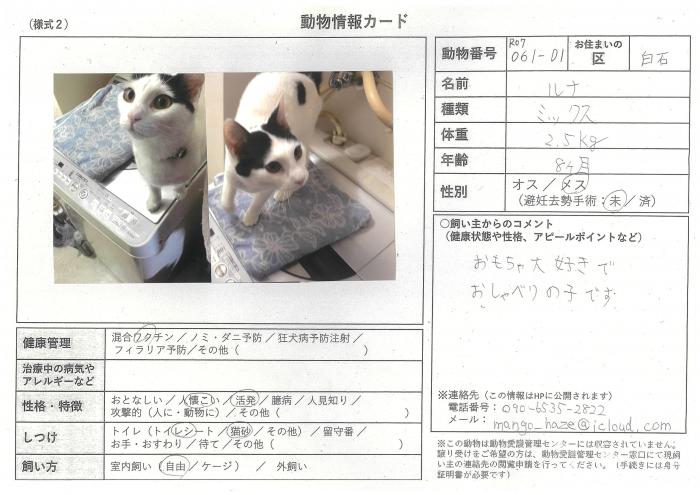 （様式２）
動物情報カード
動物番号 R07 061-01 お住まいの区 白石
名前 ルナ
種類 ミックス
体重 2.5kg
年齢 8ヶ月
性別 オス／メス
（避妊去勢手術：未／済）
○飼い主からのコメント
（健康状態や性格、アピールポイントなど）
おもちゃ大好きで
おしゃべりの子です
※連絡先（この情報はHPに公開されます）
電話番号：090-6535-2822
メール：mango_haze@icloud.com
健康管理 混合ワクチン／ノミ・ダニ予防／狂犬病予防注射／
フィラリア予防／その他（ ）
治療中の病気や
アレルギーなど
性格・特徴 おとなしい／人懐こい／活発／臆病／人見知り／
攻撃的（人に・動物に）／その他（ ）
しつけ トイレ（トイレシート／猫砂／その他）／留守番／
お手・おすわり／待て／その他（ ）
飼い方 室内飼い（自由／ケージ） ／ 外飼い
※この動物は動物愛護管理センターには収容されていません。
譲り受けをご希望の方は、動物愛護管理センター窓口にて現飼
い主の連絡先の閲覧申請を行ってください。（手続きには身分
証明書が必要です）